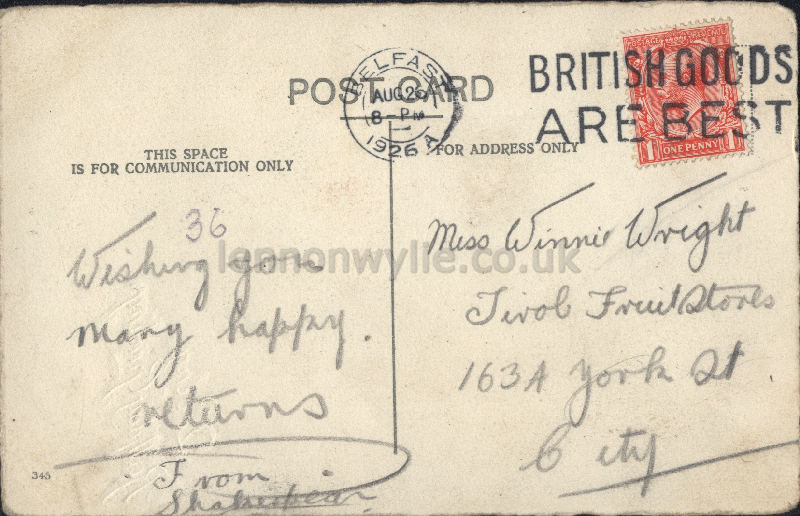 POST CARD
BELFAST
AUG 26
8 - PM
1926 A
BRITISH GOODS
ARE BEST
POSTAGE REVENUE
1 ONE PENNY 1
THIS SPACE
IS FOR COMMUNICATION ONLY
FOR ADDRESS ONLY
36
Wishing you
many happy.
returns
From
Shakespear
345
Miss Winnie Wright
Tivoli Fruit Stores
163A York St
City
lennonwylie.co.uk